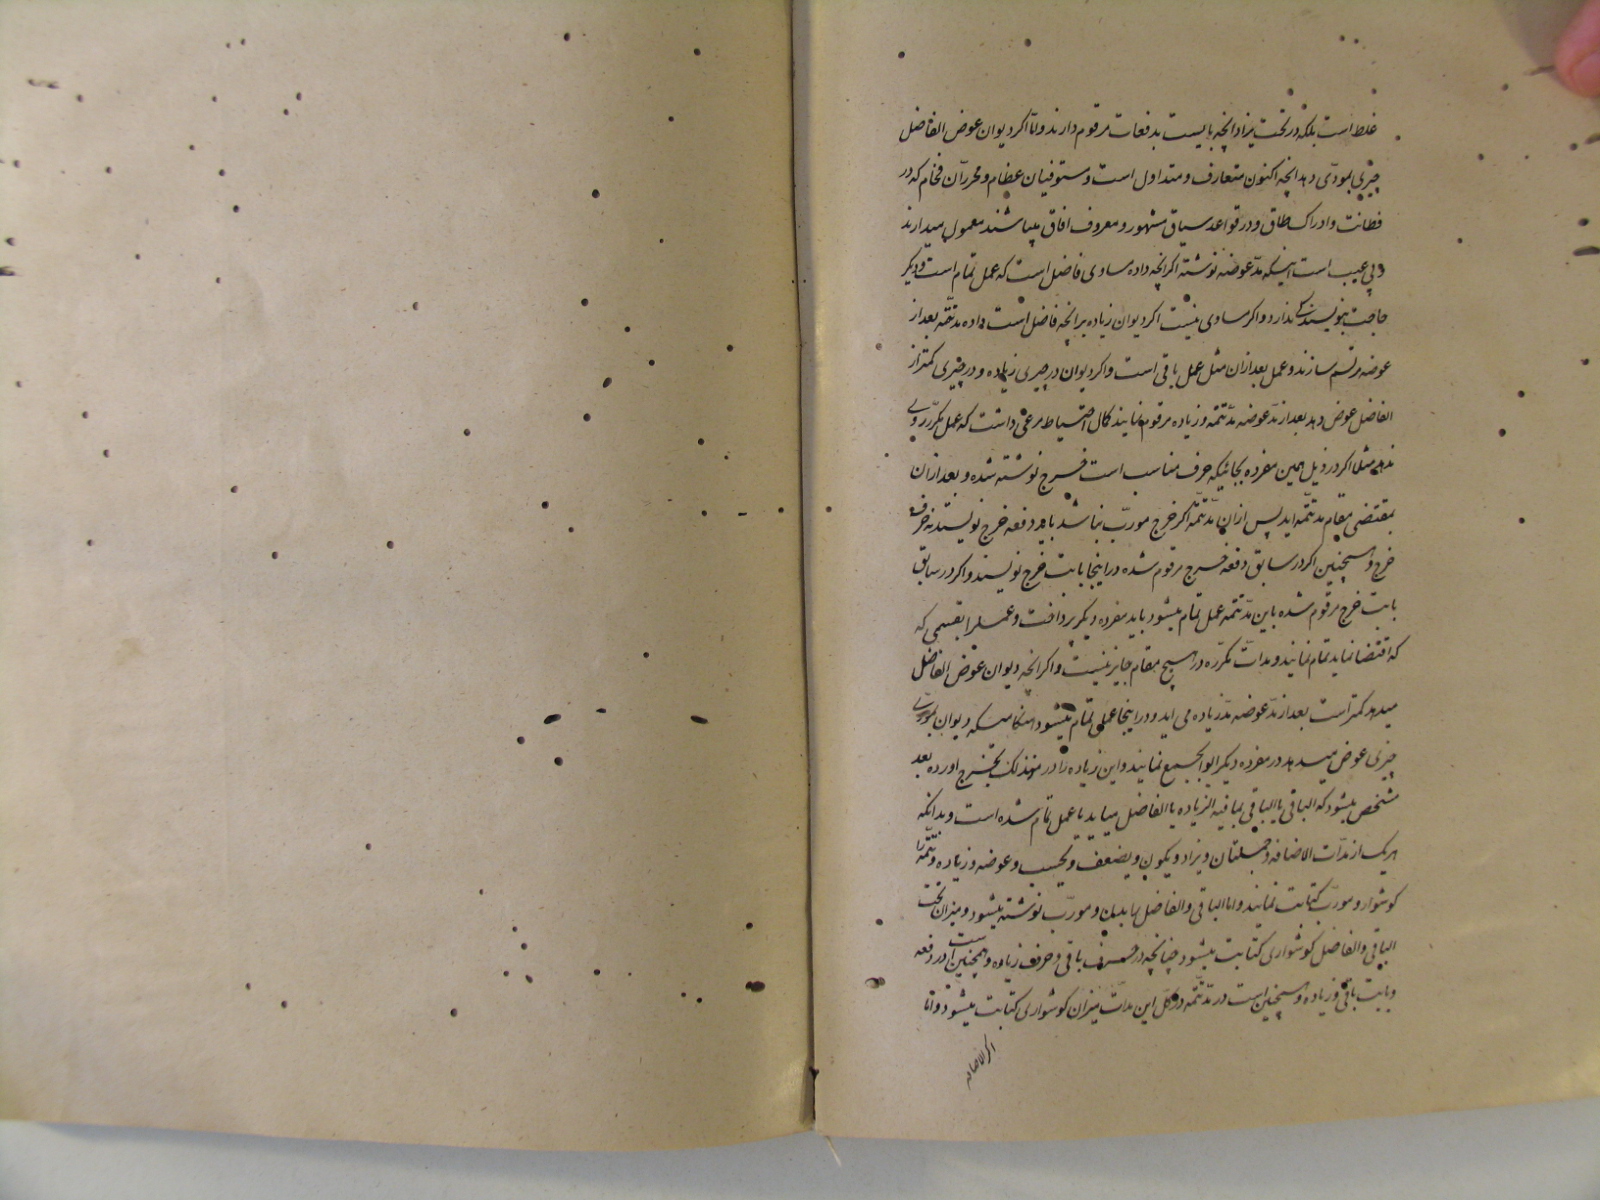 غلط است بلکه در تحت یزاد انچه بایست بدفعات مرقوم دارند و اما اکر دیوان عوض الفاضل
چیزی بمودّی دهد انچه اکنون متعارف و متداول است و مستوفیان عظام و محررّان فخام که در
فطانت و ادراک طاق و در قواعد سیاق مشهور و معروف افاق میباشند معمول میدارند
و بی عیب است اینکه مدّ عوضه نوشته اکر انچه داده مساوی فاضل است که عمل تمام است و دیکر
حاجت بنویسندکی ندارد و اکر مساوی نیست اکر دیوان زیاده بر انچه فاضل است داده مد تتمّه بعد از
عوضه مرتسم سازند و عمل بعد ازان مثل عمل باقی است و اکر دیوان در چیزی زیاده و در چیزی کمتر از
الفاضل عوض دهد بعد از مدّ عوضه مدّ تتمّه و زیاده مرقوم نمایند کمال احتیاط مرعی داشت که عمل مکرّر روی
ندهد مثلا اکر در ذیل همین مفرده بجائیکه حرف مناسب است خرج نوشته شده و بعد ازان
بمقتضی مقام مد تتمّه اید پس ازان مدّ تتمّه اکر خرج مورّب نباشد باید دفعه خرج نویسند نه حرف
خرج و همچنین اکر در سابق دفعه خرج مرقوم شده در اینجا بابت خرج نویسند و اکر در سابق
بابت خرج مرقوم شده باین مدّ تتمّه عمل تمام میشود باید مفرده دیکر پرداخت و عمل را بقسمی که
که اقتضا نماید تمام نمایند و مدات مکرّره در هیچ مقام جایز نیست و اکر انچه دیوان عوض الفاضل
میدهد کمتر است بعد از مدّ عوضه مدّ زیاده می اید و در اینجا عمل تمام میشود هنکامیکه دیوان بمودّی
چیزی عوض میدهد در مفرده دیکر ابواجمیع نمایند و این زیاده را در منذلک بخرج اورده بعد
مشخص میشود که الباقی یا الباقی بما فیه الزیاده یا الفاضل میاید یا عمل تمام شده است و بدانکه
هر یک از مدّات الاضافه و جملتان و یزاد و یکون و یضعف و یحسب و عوضه و زیاده و تتمّه را
کوشوار و مورّب کتابت نمایند و اما الباقی و الفاضل و مورّب نوشته میشود و میزان تحت
الباقی و الفاضل کوشواری کتابت میشود چنانچه در حرف باقی و حرف زیاده و همچنین است در دفعه
و بابت باقی و زیاده و همچنین است در مدّ تتمّه و در کل این مدّات میزان کوشواری کتابت میشود و اما
اکر الاضافه